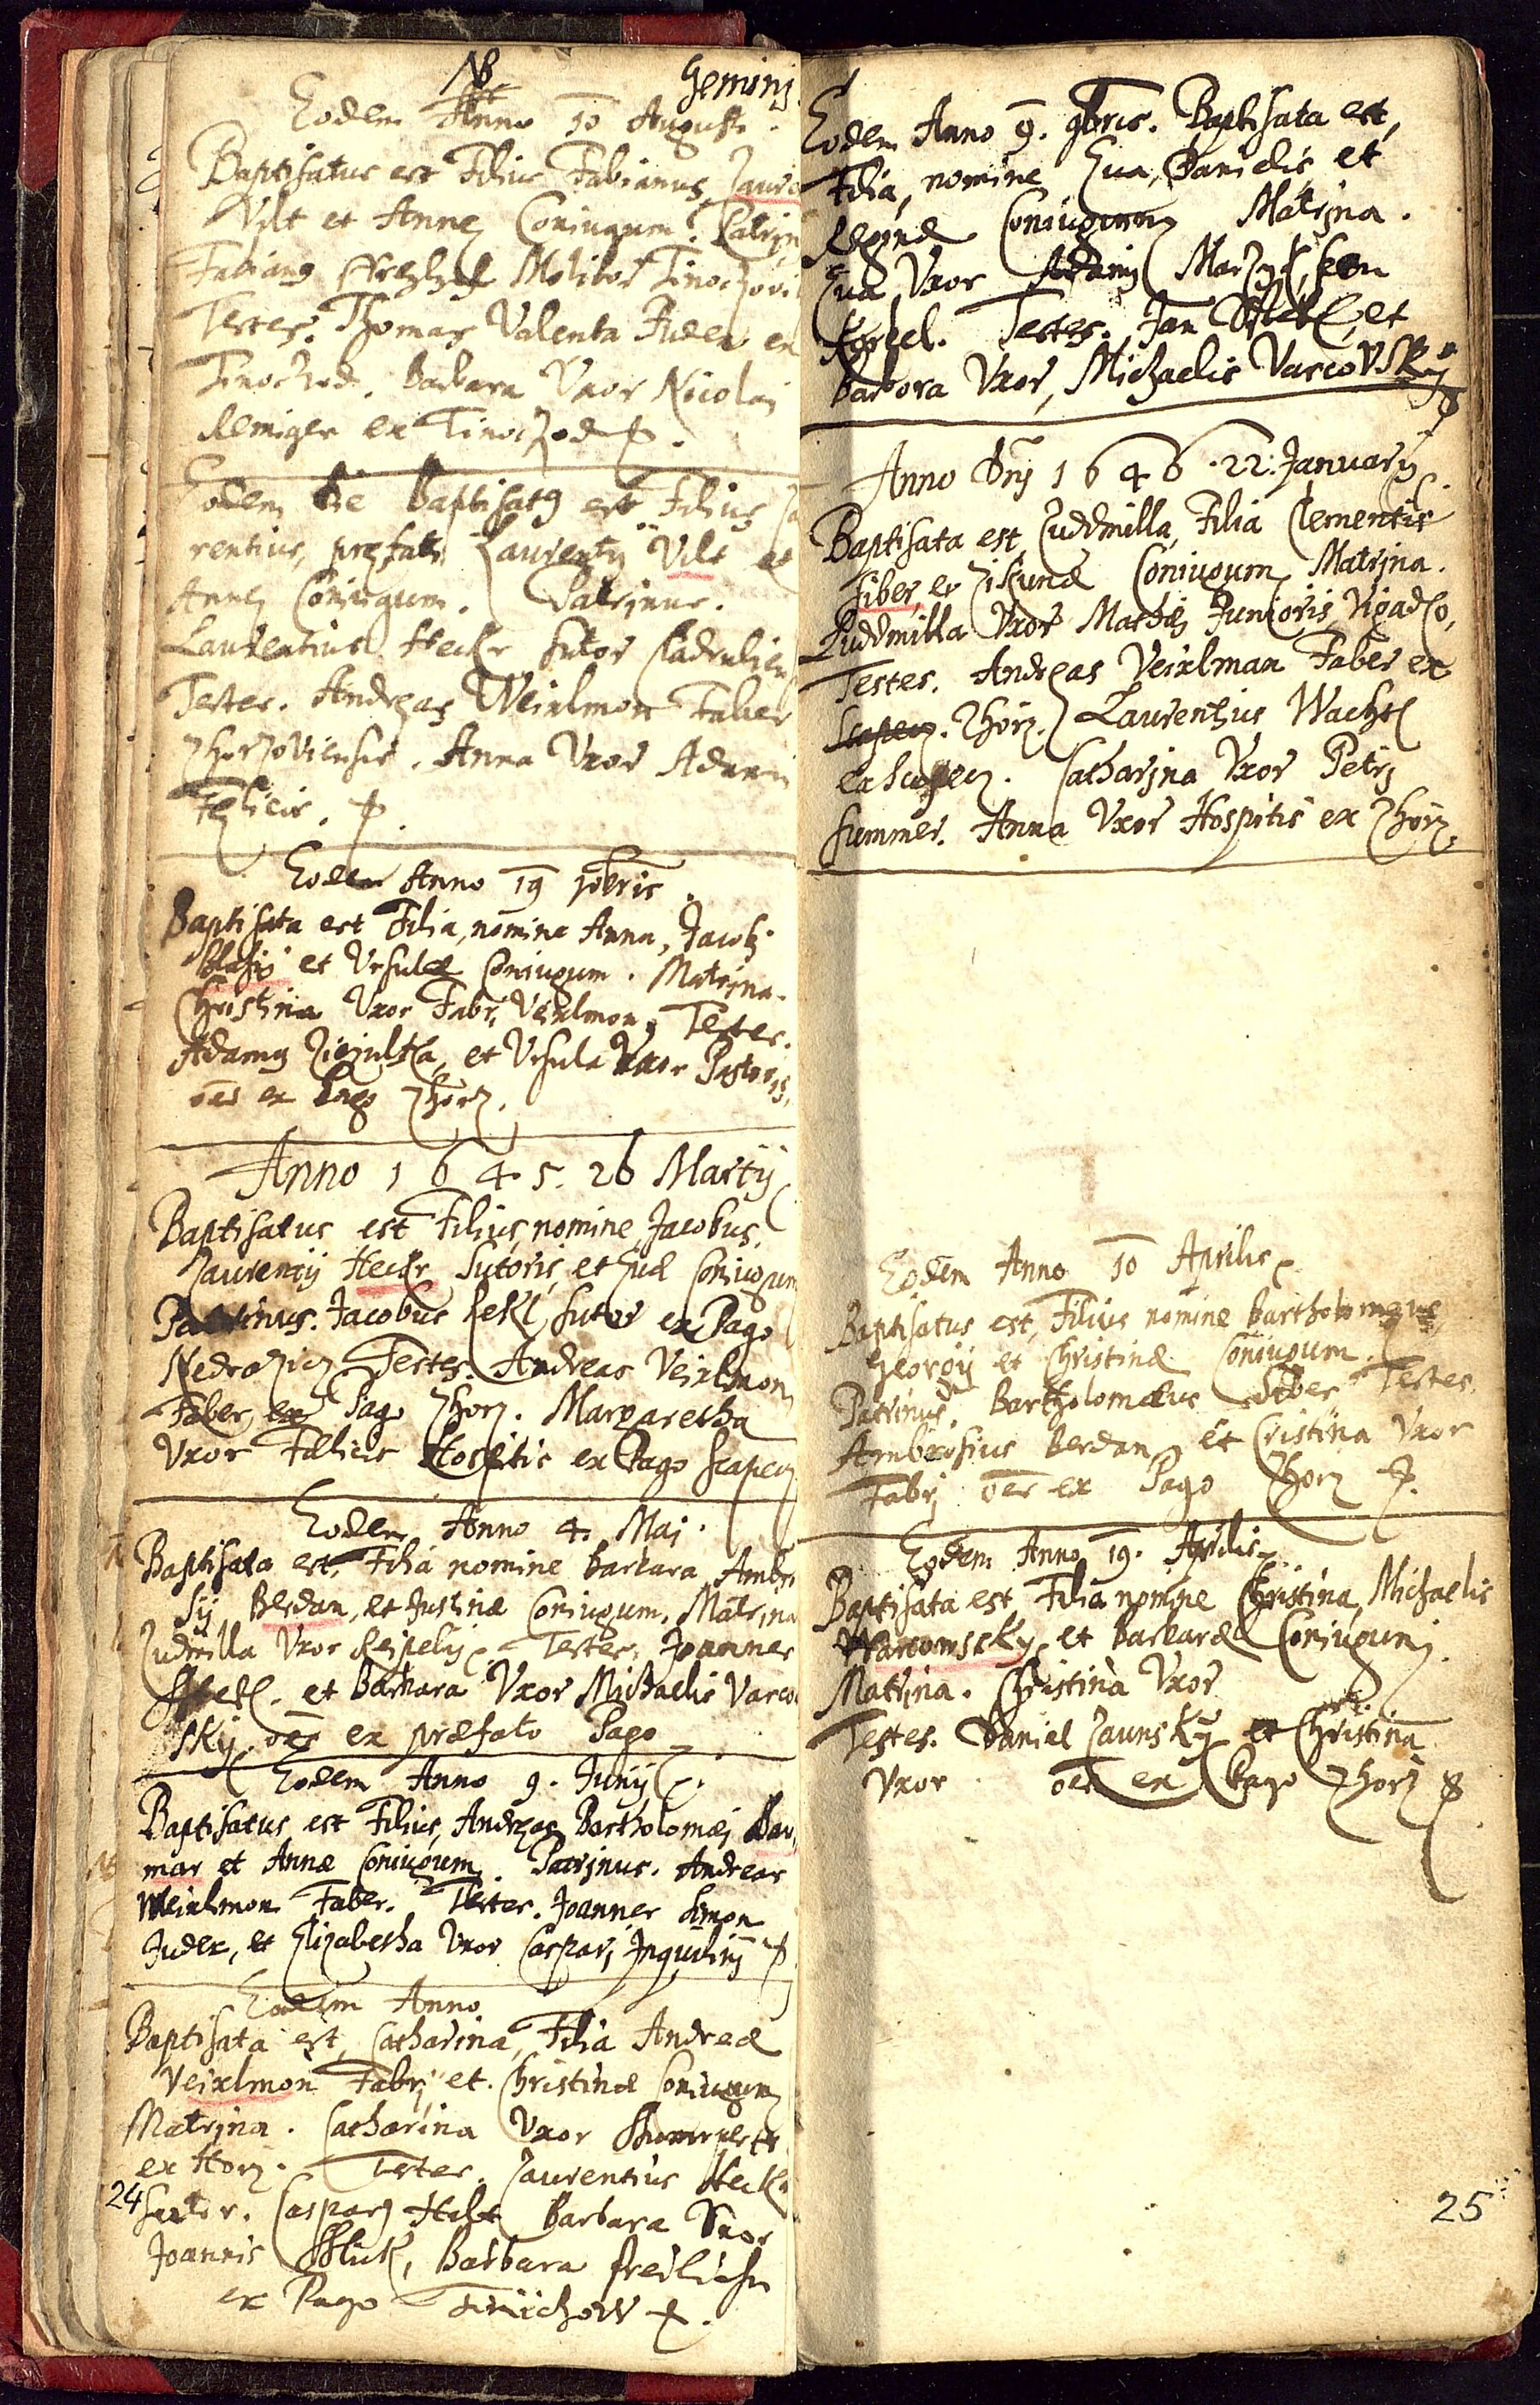 NB Geminj
Eodem Anno 10 Augusti.
Baptisatus est Filius Fabianus, Laure
Vilt et Annæ Coniugum. Patrin
Fabiang Molitor Tinochovi
Testes. Thomas Valenta Judex ex
Tinochod. Barbara Vxor Nicolaj
Remiger ex Tinochod
Eodem die Baptisatg est Filius La
rentius, præfati Laurentij Vilt et
Annæ Coniugum. Patrjnus.
Laurentius Heckr Sutor Cladrubien
Testes. Andreas Weixlmon Faber
Zhorzoviensis. Anna Vxor Adami
Felicis.
Eodem Anno 19 10bris
Baptisata est Filia, nomine Anna, Jacobj
Blasij et Vrsulæ Coniugum. Matrjna.
Christina Vxor Fabrj Veixlmon, Testes.
Adamg et Vrsula Vxor Pastoris,
oes ex Pago Zhorz.
Anno 1645. 26 Martij
Baptisatus est Filius, nomine Jacobus,
Laurentij Heckr Sutoris, et Euæ Coniugum
Patrinus. Jacobus Sekl, Sutor ex Pago
Nedrazicz Testes. Andreas Veixlmon
Faber, ex Pago Zhorz. Margaretha
Vxor Fælicis Hospitis ex Pago Scapecz
Eodem Anno 4. Maj.
Baptisata est, Filia nomine Barbara Ambro
sij Berdan, et Justinæ Coniugum. Matrina
Ludmilla Vxor Testes, Joannes
et Barbara Vxor Michaelis Varcov
skij. oes ex præfato Pago
Eodem Anno 9. Junij
Baptisatus est Filius, Andreas Bartholomæj Bau
mar et Annæ Coniugum. Patrjnus. Andreas
Weixlmon Faber. Testes. Joannes Simon
Judex, et Elizabetha Vxor Casparj Jnquilinj
Eodem Anno
Baptisata est, Catharina, Filia Andreæ
Veixlmon Fabrj et Christinæ Coniugum
Matrjna. Catharina Vxor
ex Horz. Testes. Laurentius Heckr
24 Sutor. Casparg Hilt Barbara Vxor
Joannis Barbara freilichn
ex Pago Tinichow
Eodem Anno 9. 9bris. Baptisata est,
Filia, nomine Eua, Danielis et
Reginæ Coniugum Matrjna.
Eua Vxor Adamj seu
Testes. Jan et
Barbora Vxor, Michaelis Varcovskij
Anno Dnj 1646. 22. Januarij
Baptisata est Luddmilla, Filia Clementis
Siber, et Coniugum Matrjna.
Luddmilla Vxor Mathiæ Junioris
Testes. Andreas Veixlman Faber ex
Scapecz. Zhorz. Laurenthius Wachtl
ex Scapecz. Catharjna Vxor Petrj
Summer. Anna Vxor Hospitis ex Zhorz.
Eodem Anno 10 Aprilis
Baptisatus est, Filius nomine Bartholomæus,
Georgij et Christinæ Coniugum.
Patrinus. Bartholomæus Siber Testes.
Ambrosius Berdan, et Cristina Vxor
Fabrj oes ex Pago Zhorz
Eodem Anno 19. Aprilis
Baptisata est Filia nomine Christina, Michaelis
Warcowsky et Barbaræ Coniugum
Matrina. Christina Vxor
Testes. Daniel Launsky et Christina
Vxor oes ex Pago Zhorz
25